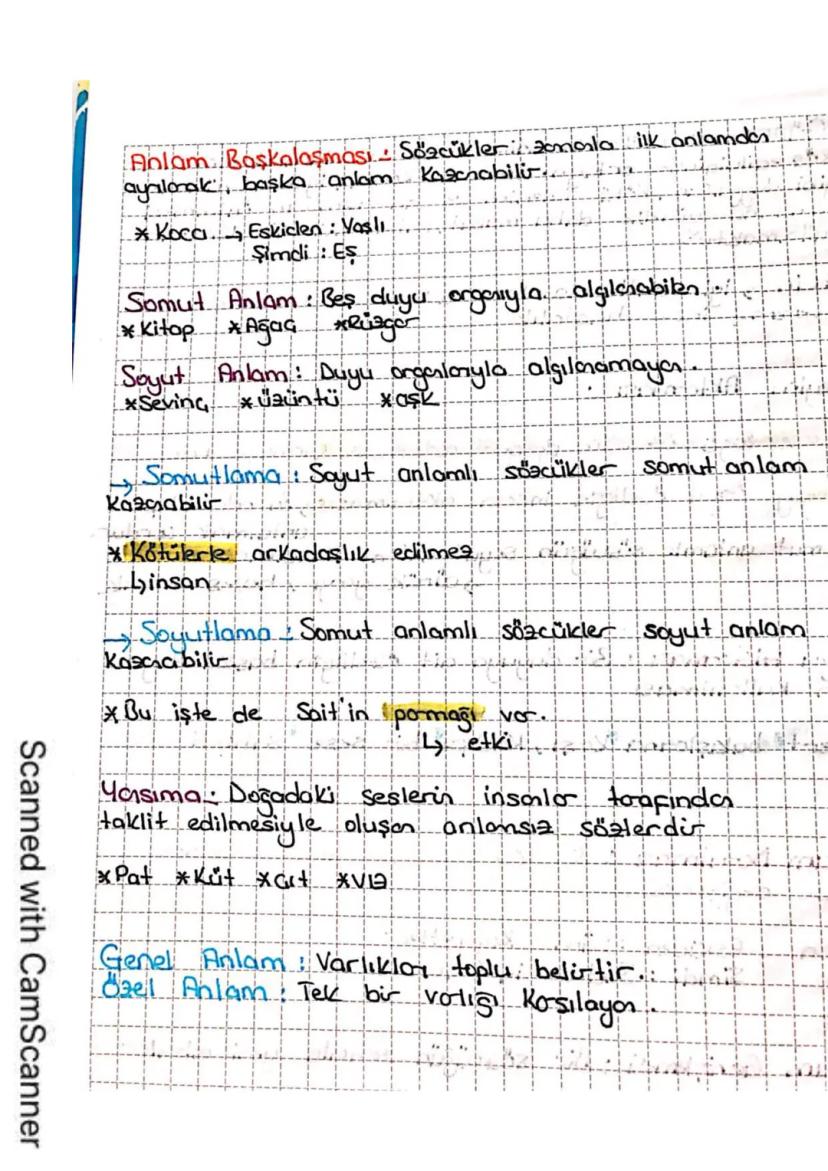 Anlam Başkalaşması : Sözcükler zamanla ilk anlamdan
ayrılarak, başka anlam kazanabilir.
* Koca → Eskiden : Yaşlı
Şimdi : Eş
Somut Anlam : Beş duyu organıyla algılanabilen.
* Kitap * Ağaç * Rüzgar
Soyut Anlam : Duyu organlarıyla algılanamayan.
* Sevinç * üzüntü * aşk
→ Somutlama : Soyut anlamlı sözcükler somut anlam
kazanabilir
* Kötülerle arkadaşlık edilmez
↳ insan
→ Soyutlama : Somut anlamlı sözcükler soyut anlam
kazanabilir.
* Bu işte de Sait'in parmağı var.
↳ etki
Yansıma : Doğadaki seslerin insanlar tarafından
taklit edilmesiyle oluşan anlamsız sözlerdir
* Pat * Küt * Çıt * Vız
Genel Anlam : Varlıkları toplu belirtir.
Özel Anlam : Tek bir varlığı karşılayan.
Scanned with CamScanner